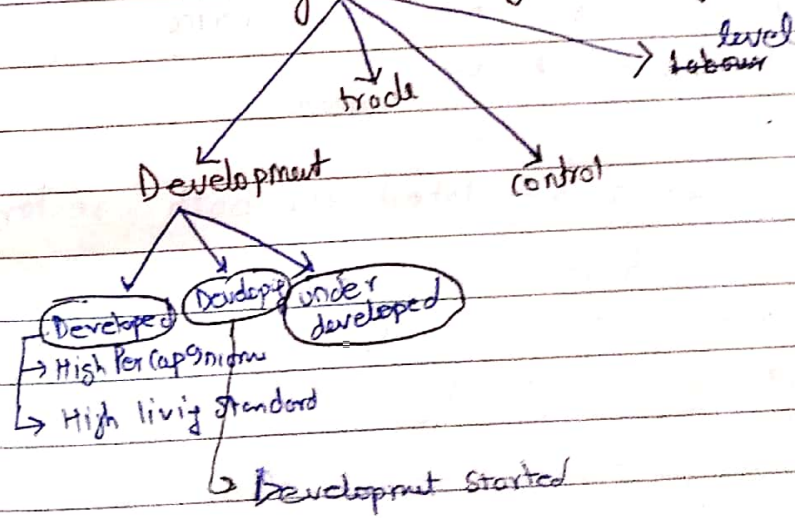 level
trade
Development
control
Developed
Developig
under
developed
High Per Cap
High livig Standard
Developmet Started